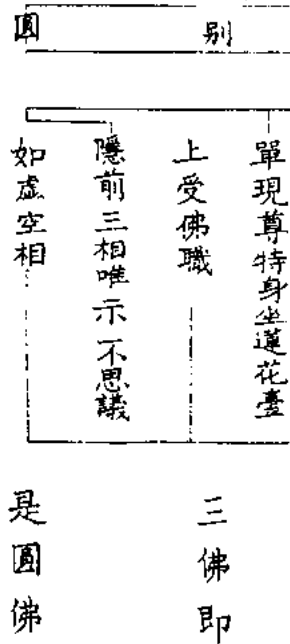 別
圓
單現尊特身坐蓮花臺
上受佛職
隱前三相唯示不思議
如虛空相
三佛即
是圓佛